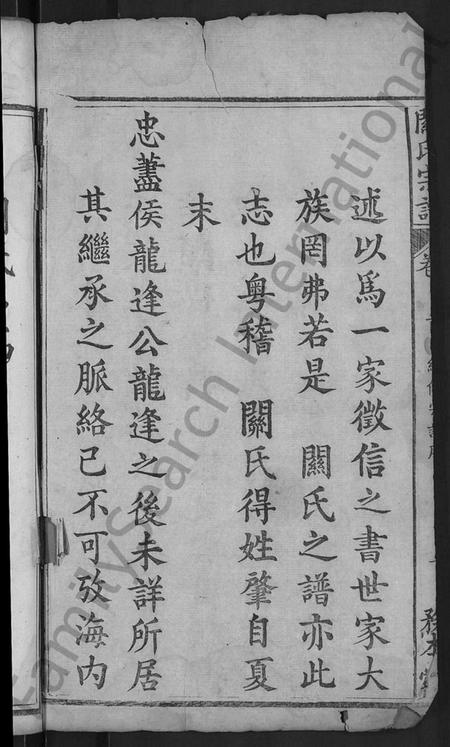 關氏宗譜
卷
述以爲一家徵信之書世家大
族罔弗若是 關氏之譜亦此
志也粵稽 關氏得姓肇自夏
末
忠藎侯龍逄公龍逄之後未詳所居
其繼承之脈絡已不可攷海内
FamilySearch International